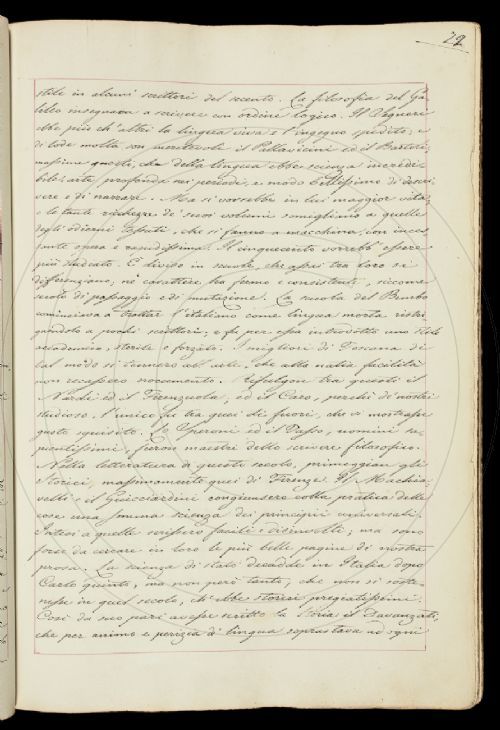 79
stile in alcuni scrittori del secento. La filosofia del Ga-
lileo insegnava a scrivere con ordine logico. Il Segneri
ebbe più ch'altri la lingua viva e l'ingegno spedito; e
di lode molta son meritevoli il Pallavicini ed il Bartoli;
massime questi, che della lingua ebbe scienza incredi-
bile: arte profonda nei periodi, e modo bellissimo di descri-
vere e di narrare. Ma si vorrebbe in lui maggior vita;
e le tante ricchezze de' suoi volumi somigliano a quelle
degli odierni tessuti, che si fanno a macchina, con inces-
sante opera e rapidissima. Il cinquecento vorrebb' essere
più studiato. È diviso in scuole, che assai tra loro si
differenziano, nè carattere ha fermo e consistente, siccome
secolo di passaggio e di mutazione. La scuola del Bembo
cominciava a trattar l'italiano come lingua morta restri-
gendolo a pochi scrittori; e fu per essa introdotto uno stile
accademico, sterile e forzato. I migliori di Toscana di
tal modo si tennero all'arte, che alla natia facilità
non recassero nocumento. Rifulgon tra questi il
Nardi ed il Firenzuola, ed il Caro, perchè de' nostri
studioso, l'unico fu tra quei di fuori, che vi mostrasse
gusto squisito. Lo Speroni ed il Tasso, uomini sa-
pientissimi, feron maestri dello scrivere filosofico.
Nella letteratura di questo secolo, primeggian gli
Storici, massimamente quei di Firenze. Il Machia-
velli e il Guicciardini congiunsero colla pratica delle
cose una somma scienza dei principii universali.
Intesi a quelle scrissero facili e disinvolti, ma sono
forse da cercare in loro le più belle pagine di nostra
prosa. La scienza di stato decadde in Italia dopo
Carlo Quinto, ma non però tanto, che non si soste-
nesse in quel secolo, ch' ebbe storici pregiatissimi.
Così da suo pari avesse scritto la Storia il Davanzati,
che per animo e perizia di lingua soprastava ad ogni